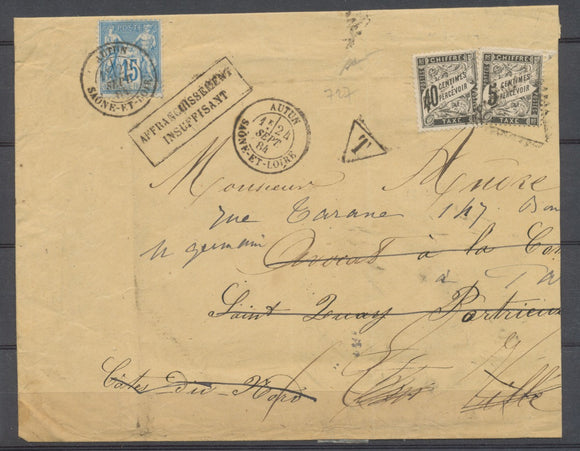 AUTUN
15
SAÔNE-ET-LOIRE
AFFRANCHISSEMENT
INSUFFISANT
AUTUN
24
SEPT
84
SAÔNE-ET-LOIRE
CHIFFRE
40 CENTIMES
PERCEVOIR
TAXE
CHIFFRE
5 CENTIMES
PERCEVOIR
TAXE
T
Monsieur
rue Tarane 147
St germain Avocat à la
à
Saint Quay Portrieux
Côtes du Nord
Ville